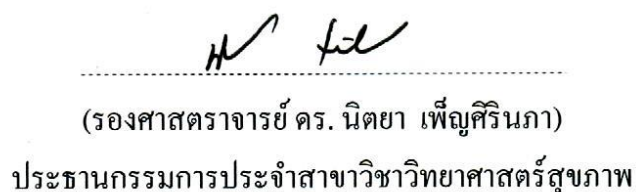 (รองศาสตราจารย์ ดร. นิตยา เพ็ญศิรินภา)
ประธานกรรมการประจำสาขาวิชาวิทยาศาสตร์สุขภาพ